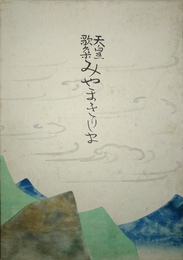 歌集
みやまきりしま